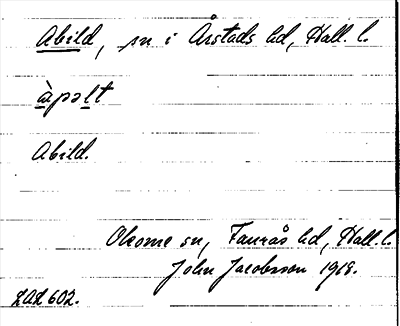 Abild, sn i Årstads hd, Hall. l.
àpəlt
Abild.
Okome sn, Faurås hd, Hall. l.
John Jacobsson 1918.